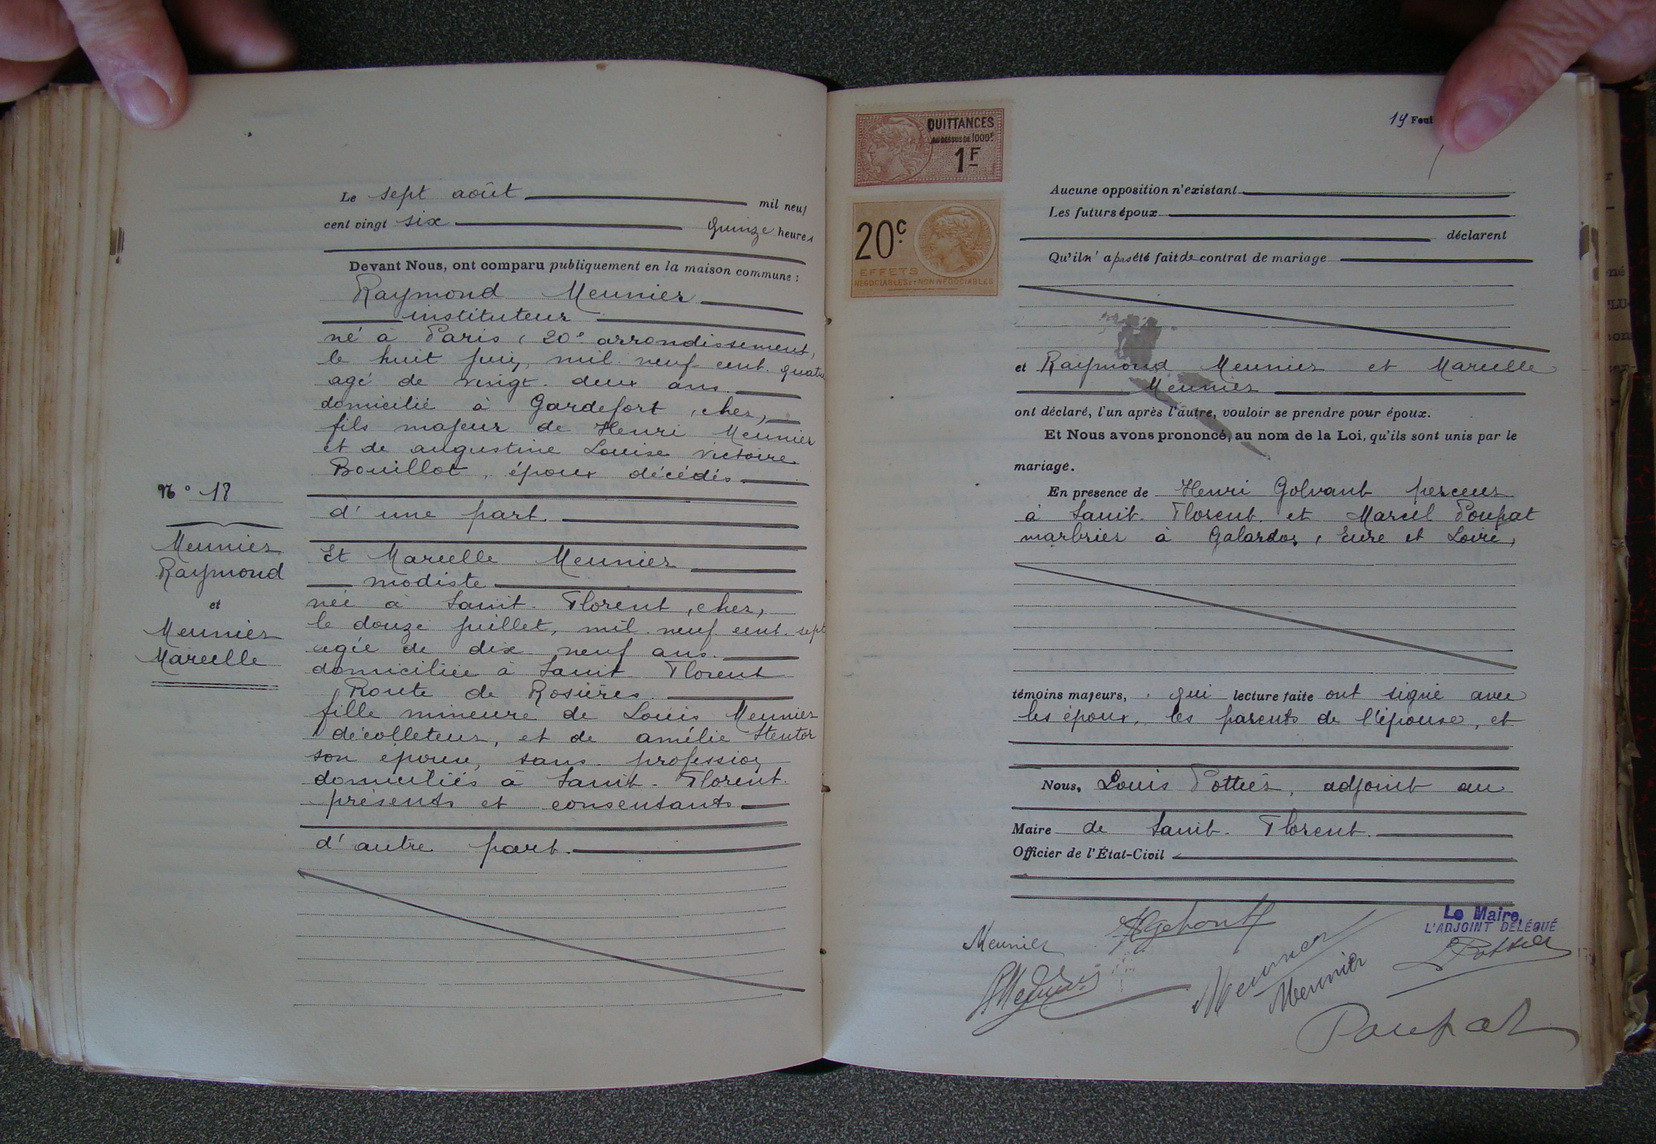 Le sept août mil neuf
cent vingt six quinze heures
Devant Nous, ont comparu publiquement en la maison commune :
Raymond Meunier
instituteur
né à Paris, 20e arrondissement,
le huit juin, mil neuf cent quatre
agé de vingt deux ans
domicilié à Gardefort, cher,
fils majeur de Henri Meunier
et de augustine Louise victoire
Bouillot, époux décédés
d'une part.
N° 18
Meunier
Raymond
et
Meunier
Marcelle
Et Marcelle Meunier
modiste
née à Saint-Florent, cher,
le douze juillet, mil neuf cent sept
agée de dix neuf ans.
domiciliée à Saint Florent
Route de Rosières
fille mineure de Louis Meunier
décolleteur, et de amélie Stentor
son épouse, sans profession,
domiciliés à Saint-Florent
présents et consentants
d'autre part.
QUITTANCES
AU DESSUS DE 1000F
1F
20c
EFFETS
NÉGOCIABLES & NON NÉGOCIABLES
19 Feui
Aucune opposition n'existant
Les futurs époux
déclarent
Qu'il n'a pas été fait de contrat de mariage
et Raymond Meunier et Marcelle
Meunier
ont déclaré, l'un après l'autre, vouloir se prendre pour époux.
Et Nous avons prononcé, au nom de la Loi, qu'ils sont unis par le
mariage.
En presence de Henri Golvant perceur
à Saint-Florent et Marcel Poupat
marbrier à Galardos, Eure et Loire,
témoins majeurs, qui lecture faite ont signé avec
les époux, les parents de l'épouse, et
Nous, Louis Pottier, adjoint au
Maire de Saint-Florent.
Officier de l'État-Civil
Le Maire,
L'ADJOINT DÉLÉGUÉ
Meunier
Meunier
Meunier
L Pottier
Poupat